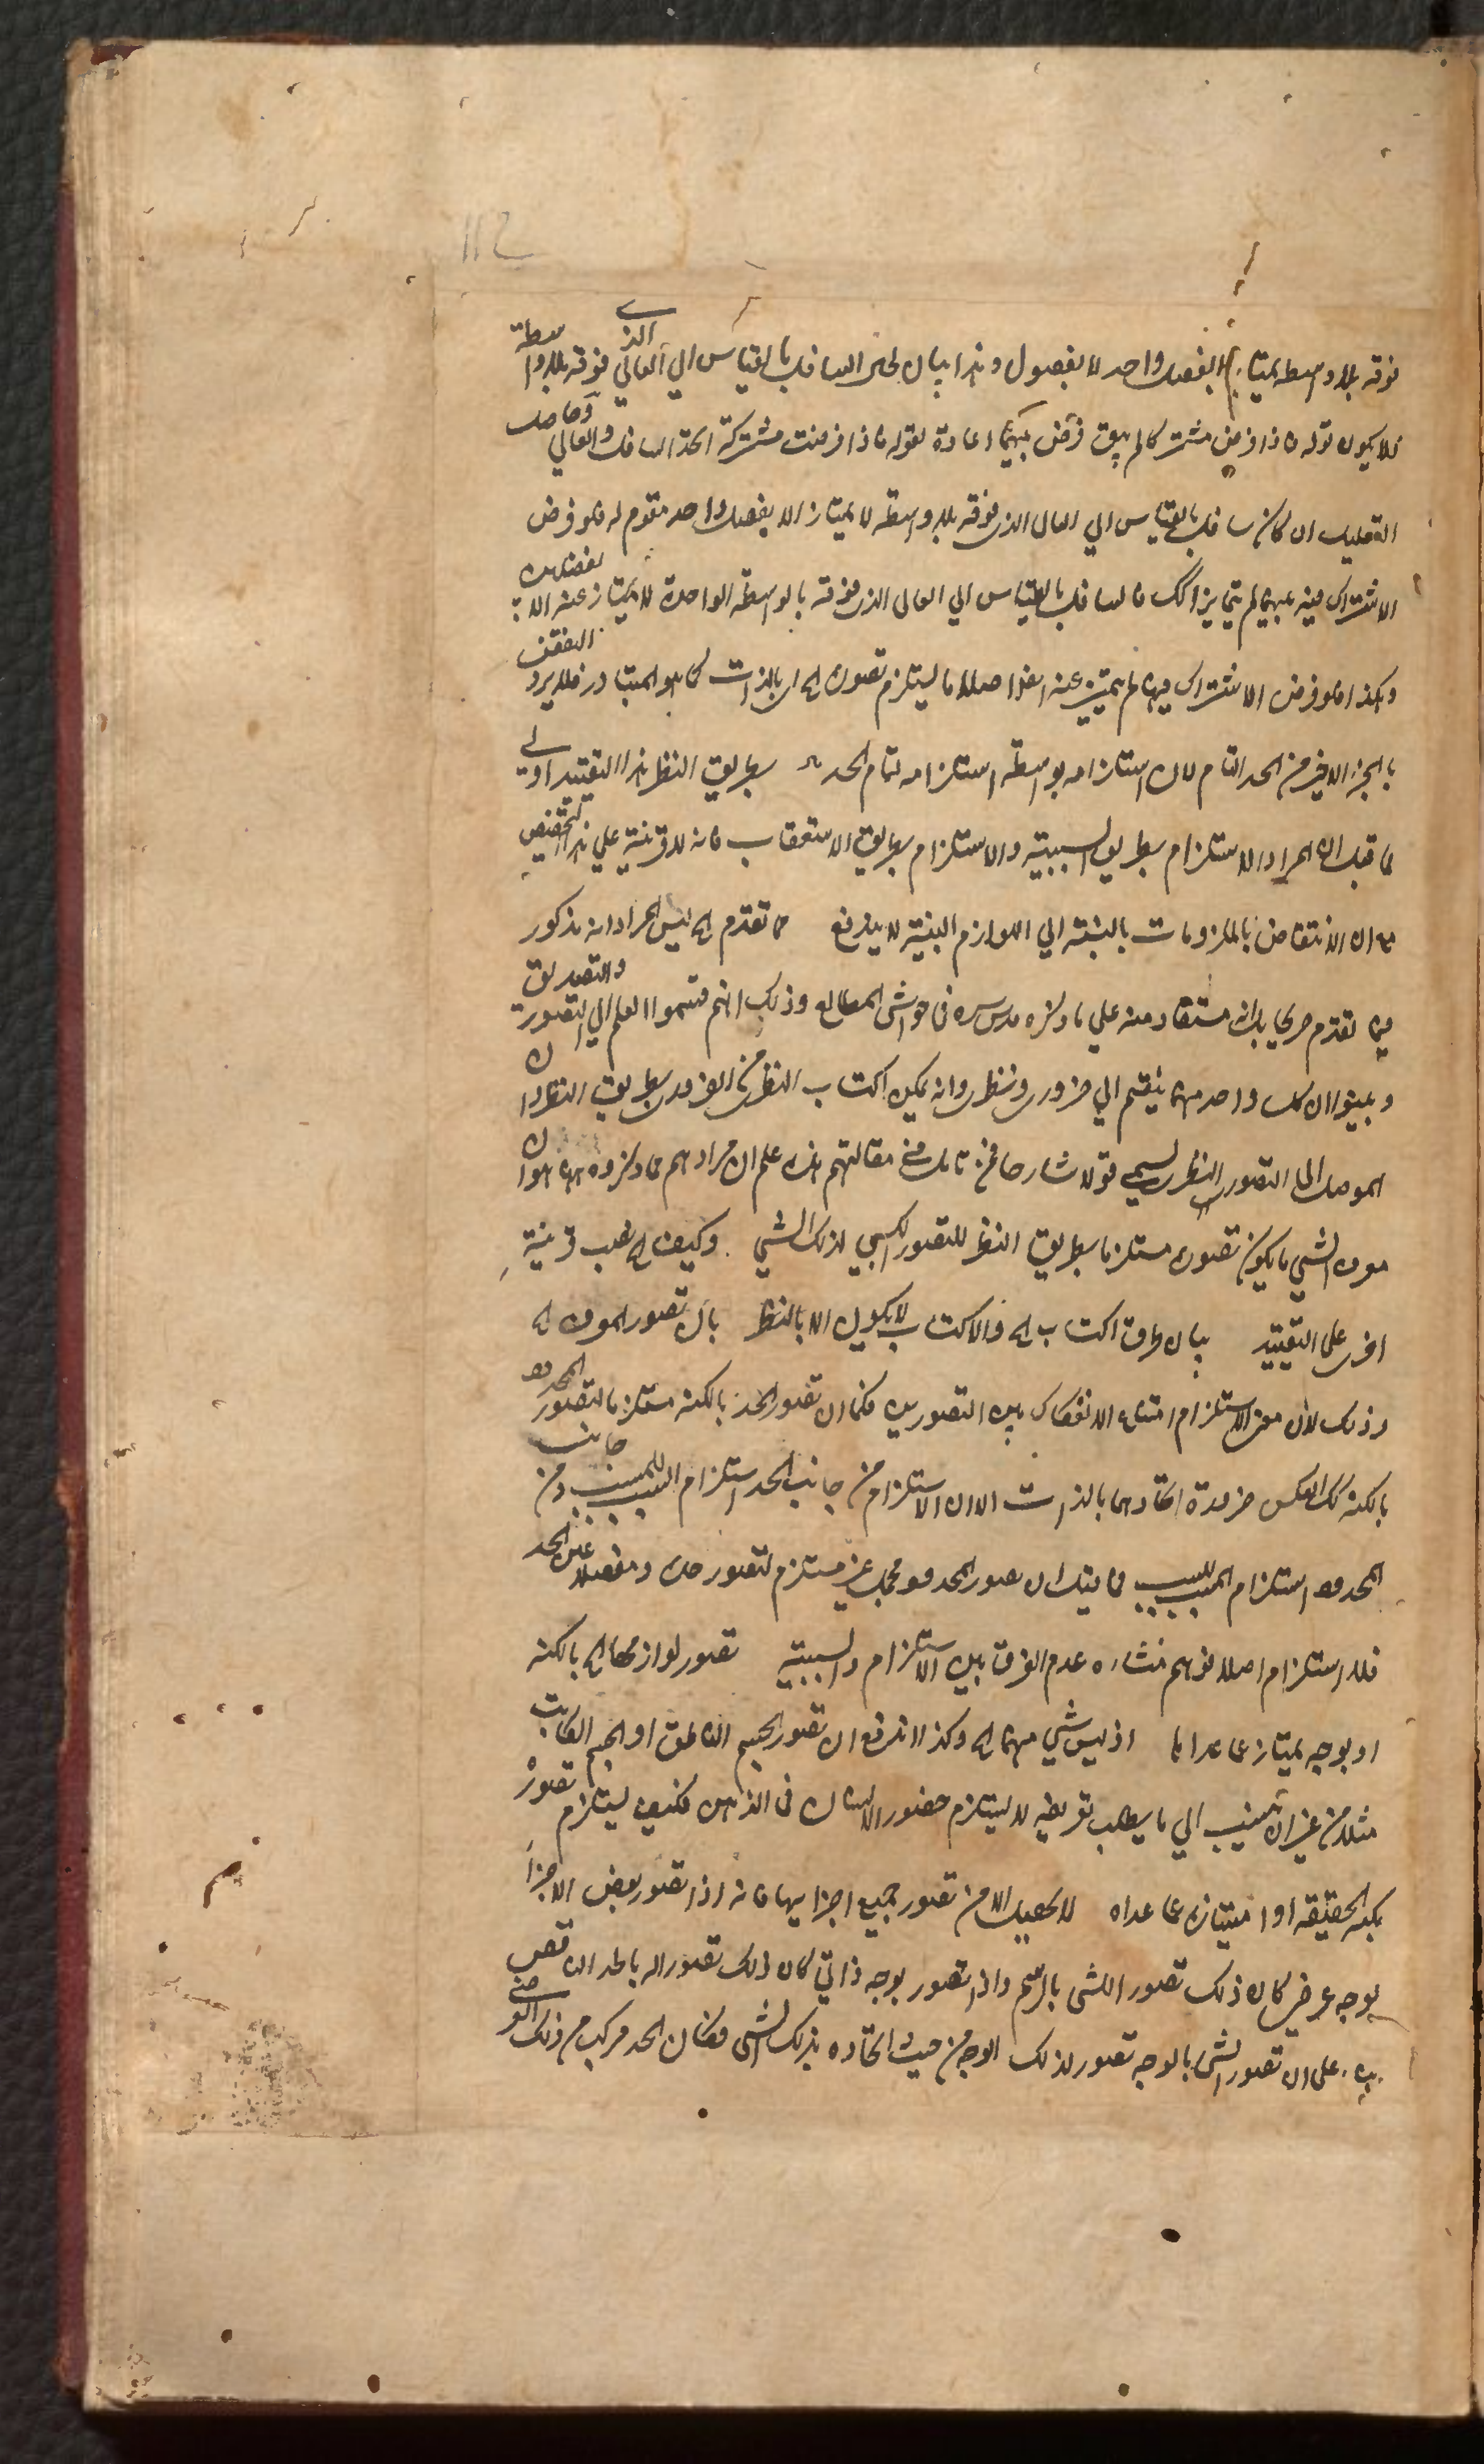 فوقه بلا واسطه يمتاز بفصل واحد لا بفصول وهذا بيان لحال السافل بالقياس الي العالي الذي فوقه بلا واسطة
فلا يكون قوله فاذا فرض مشتركا لم يبق فرق بينهما اعادة لقوله فاذا فرضت مشتركة اتحد السافل والعالي وحاصل
التعليل ان كل سافل بالقياس الي العالي الذي فوقه بلا واسطه لا يمتاز الا بفصل واحد مقوم له فلو فرض
الاشتراك فيه بينهما لم يتمايزا فالسافل بالقياس الي العالي الذي فوقه بالواسطة الواحدة لا يمتاز عنه الا بفصلين
وهكذا فلو فرض الاشتراك فيها لم يتميز عنه اصلا ما يستلزم تصوره اي بالذات كما هو المتبادر فلا يرد النقض
بالجزء الاخير من الحد التام لان استلزامه بواسطة استلزامه تمام الحد بطريق النظر هذا التقييد اولي
مما قيل ان المراد الاستلزام بطريق السببية والاستلزام بطريق الاستعقاب فانه لا قرينة علي هذا التخصيص
مع ان الانتقاض بالملزومات بالنسبة الي اللوازم البينة لا يندفع مما تقدم اي ليس المراد انه مذكور
فيما تقدم صريحا بل انه مستفاد منه علي ما ذكره قدس سره في حواشي المطالع وذلك انهم قسموا العلم الي التصور والتصديق
وبينوا ان كل واحد منهما ينقسم الي ضروري ونظري وانه يمكن اكتساب النظري من الضروري بطريق النظر وان
الموصل الي التصور النظري يسمي قولا شارحا فمن تامل في مقالتهم هذه علم ان مرادهم مما ذكروه ههنا هو ان
معرف الشي ما يكون تصوره مستلزما بطريق النظر للتصور الكسبي لذلك الشي وكيف اي نصب قرينة
اخري علي التقييد بيان طرق اكتساب اي والاكتساب لا يكون الا بالنظر بان تصور المعرف اي
وذلك لان معني الاستلزام امتناع الانفكاك بين التصورين فكما ان تصور الحد بالكنه مستلزم لتصور المحدود
بالكنه كذلك العكس ضرورة اتحادهما بالذات الا ان الاستلزام من جانب الحد استلزام السبب للمسبب ومن جانب
المحدود استلزام المسبب للسبب فما قيل ان تصور المحدود مجملا غير مستلزم لتصور حده ومفصلا عين الحد
فلا استلزام اصلا توهم منشاءه عدم الفرق بين الاستلزام والسببية تصور لوازمها اي بالكنه
او بوجه يمتاز عما عداها اذ ليس شي منهما اي وكذا اندفع ان تصور الجسم الناطق او الجسم الكاتب
مثلا من غير ان ينسب الي ما يطلب تعريفه لا يستلزم حضور الانسان في الذهن فكيف يستلزم تصوره
بكنه الحقيقة او امتيازه عما عداه لا يحصل الا من تصور جميع اجزايها فانه اذا تصور بعض الاجزا
بوجه عرضي كان ذلك تصورا للشي بالرسم واذا تصور بوجه ذاتي كان ذلك تصورا له بالحد الناقص
علي ان تصور الشي بالوجه تصور لذلك الوجه من حيث اتحاده بذلك الشي فكان الحد مركب من ذلك